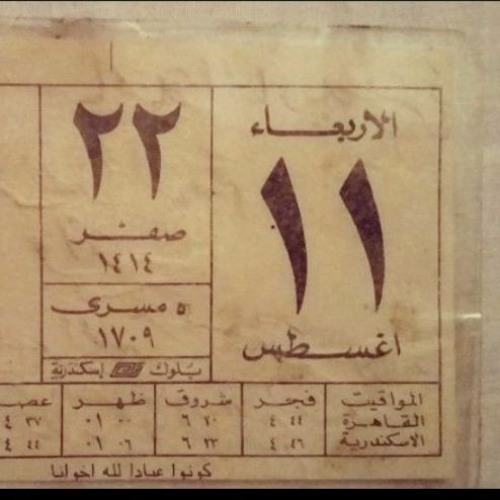 الاربعاء
١١
اغسطس
٢٢
صفر
١٤١٤
٥ مسرى
١٧٠٩
بلوك إسكندرية
المواقيت فجر شروق ظهر عصر
القاهرة ٤ ٤٤ ٦ ٢٠ ٠١ ٠٠ ٤ ٣٧
الاسكندرية ٤ ٤٦ ٦ ٢٣ ٠١ ٠٦ ٤ ٤٤
كونوا عبادا لله اخوانا